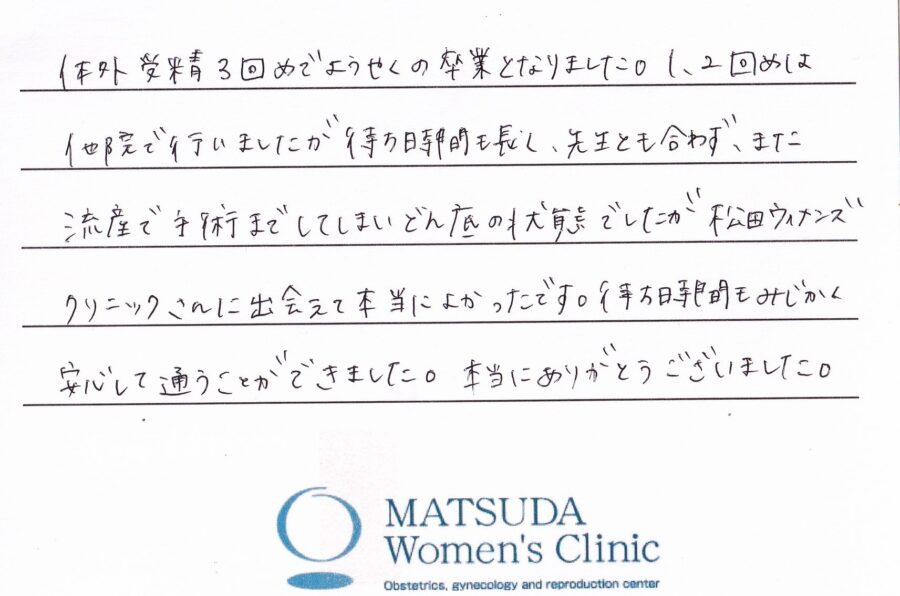 体外受精3回めでようやくの卒業となりました。1、2回めは
他院で行いましたが待ち時間も長く、先生とも合わず、また
流産で手術までしてしまいどん底の状態でしたが松田ウィメンズ
クリニックさんに出会えて本当によかったです。待ち時間もみじかく
安心して通うことができました。本当にありがとうございました。
MATSUDA
Women's Clinic
Obstetrics, gynecology and reproduction center